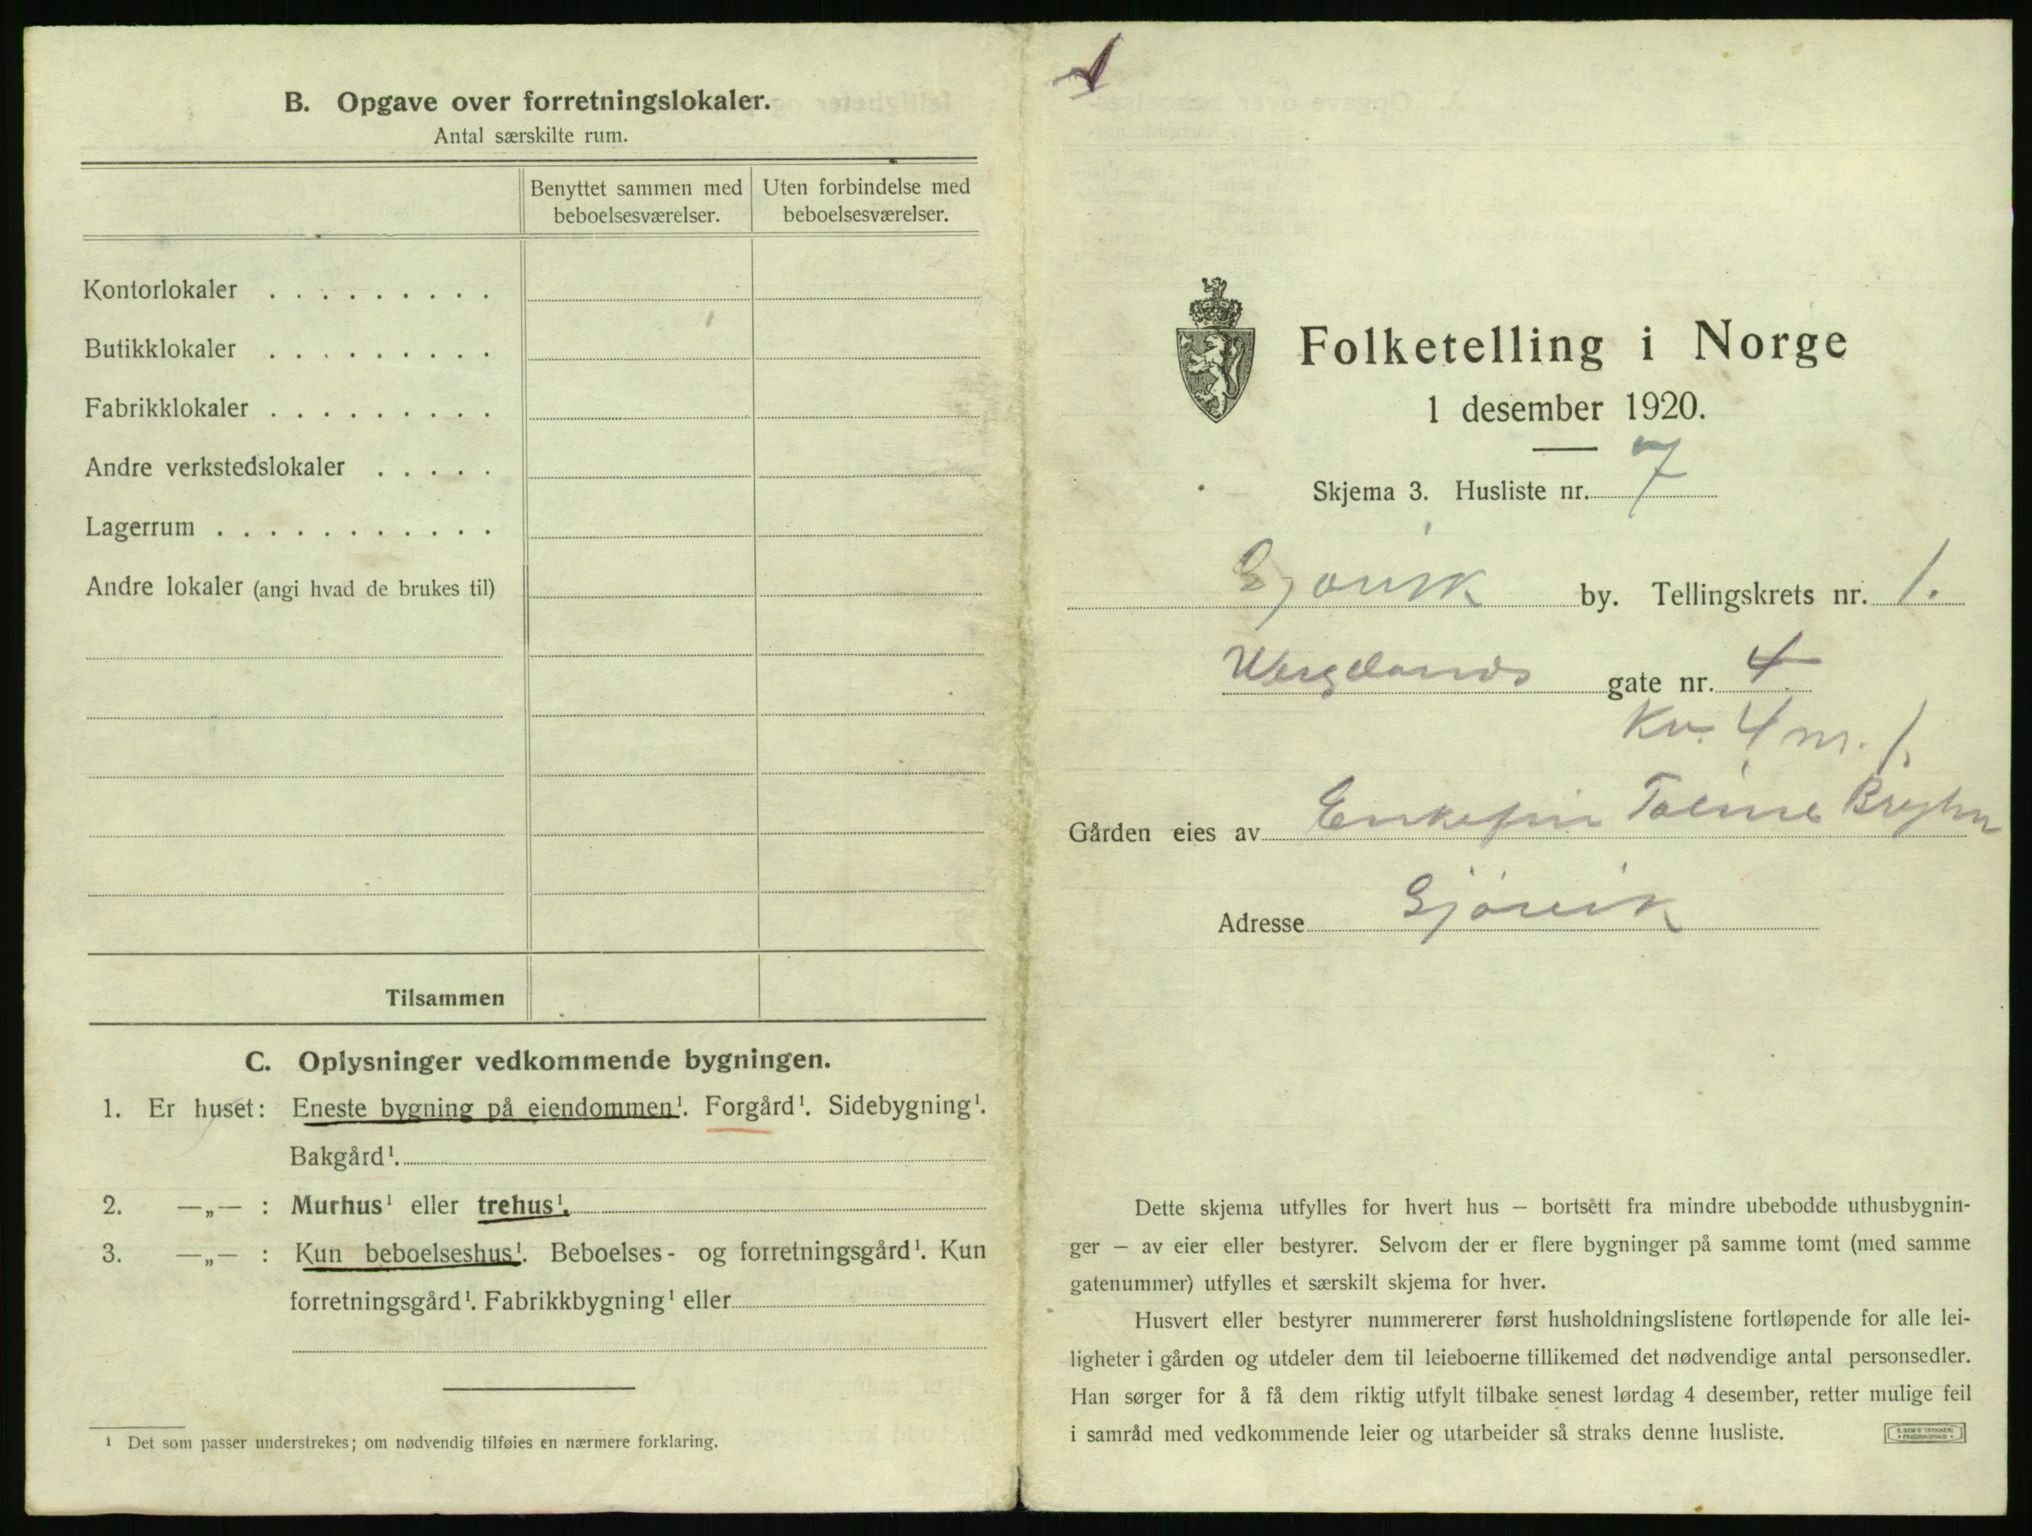 B. Opgave over forretningslokaler.
Antal særskilte rum.
Benyttet sammen med beboelsesværelser.
Uten forbindelse med beboelsesværelser.
Kontorlokaler . . . . . . . . .
Butikklokaler . . . . . . . . .
Fabrikklokaler . . . . . . . . .
Andre verkstedslokaler . . . . .
Lagerrum . . . . . . . . . . .
Andre lokaler (angi hvad de brukes til)
Tilsammen
C. Oplysninger vedkommende bygningen.
1. Er huset: Eneste bygning på eiendommen¹. Forgård¹. Sidebygning¹.
Bakgård¹.
2. —„— : Murhus¹ eller trehus¹.
3. —„— : Kun beboelseshus¹. Beboelses- og forretningsgård¹. Kun
forretningsgård¹. Fabrikkbygning¹ eller
¹ Det som passer understrekes; om nødvendig tilføies en nærmere forklaring.
Folketelling i Norge
1 desember 1920.
Skjema 3. Husliste nr. 7
Gjøvik by. Tellingskrets nr. 1.
Wergelands gate nr. 4
Kv. 4 nr. 1.
Gården eies av Enkefru Bryhn
Adresse Gjøvik
Dette skjema utfylles for hvert hus – bortsètt fra mindre ubebodde uthusbygnin-
ger – av eier eller bestyrer. Selvom der er flere bygninger på samme tomt (med samme
gatenummer) utfylles et særskilt skjema for hver.
Husvert eller bestyrer nummererer først husholdningslistene fortløpende for alle lei-
ligheter i gården og utdeler dem til leieboerne tillikemed det nødvendige antal personsedler.
Han sørger for å få dem riktig utfylt tilbake senest lørdag 4 desember, retter mulige feil
i samråd med vedkommende leier og utarbeider så straks denne husliste.